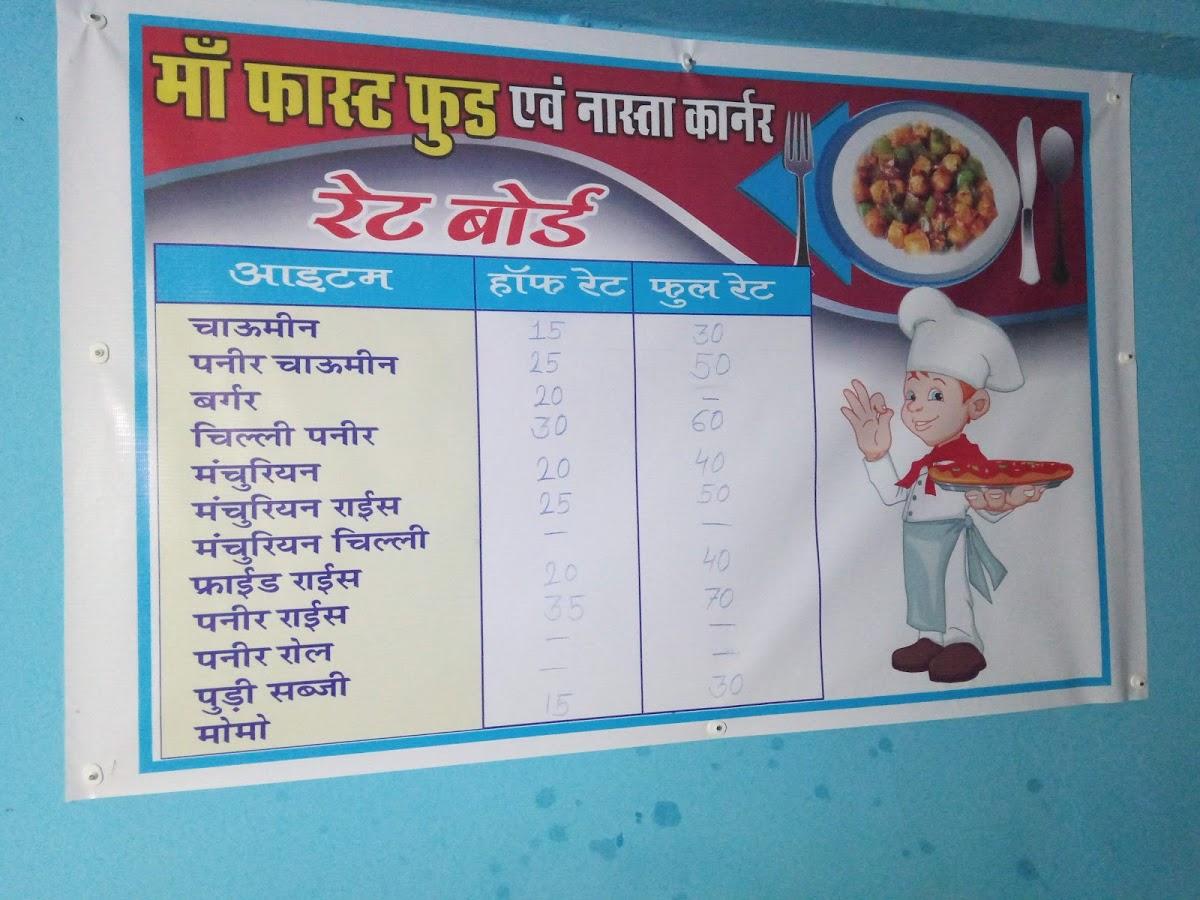 माँ फास्ट फुड एवं नास्ता कार्नर
रेट बोर्ड
आइटम हॉफ रेट फुल रेट
चाऊमीन 15 30
पनीर चाऊमीन 25 50
बर्गर 20 –
चिल्ली पनीर 30 60
मंचुरियन 20 40
मंचुरियन राईस 25 50
मंचुरियन चिल्ली – –
फ्राईड राईस 20 40
पनीर राईस 35 70
पनीर रोल – –
पुड़ी सब्जी – –
मोमो 15 30